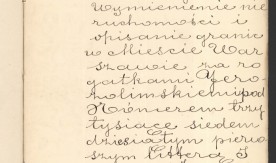 Wymienienie nie
ruchomości i
opisanie granic
w Mieście War
szawie za ro
gatkami Jero
zolimskiemi pod
Numerem trzy
tysiące siedem
dziesiątym pierw
szym littera S